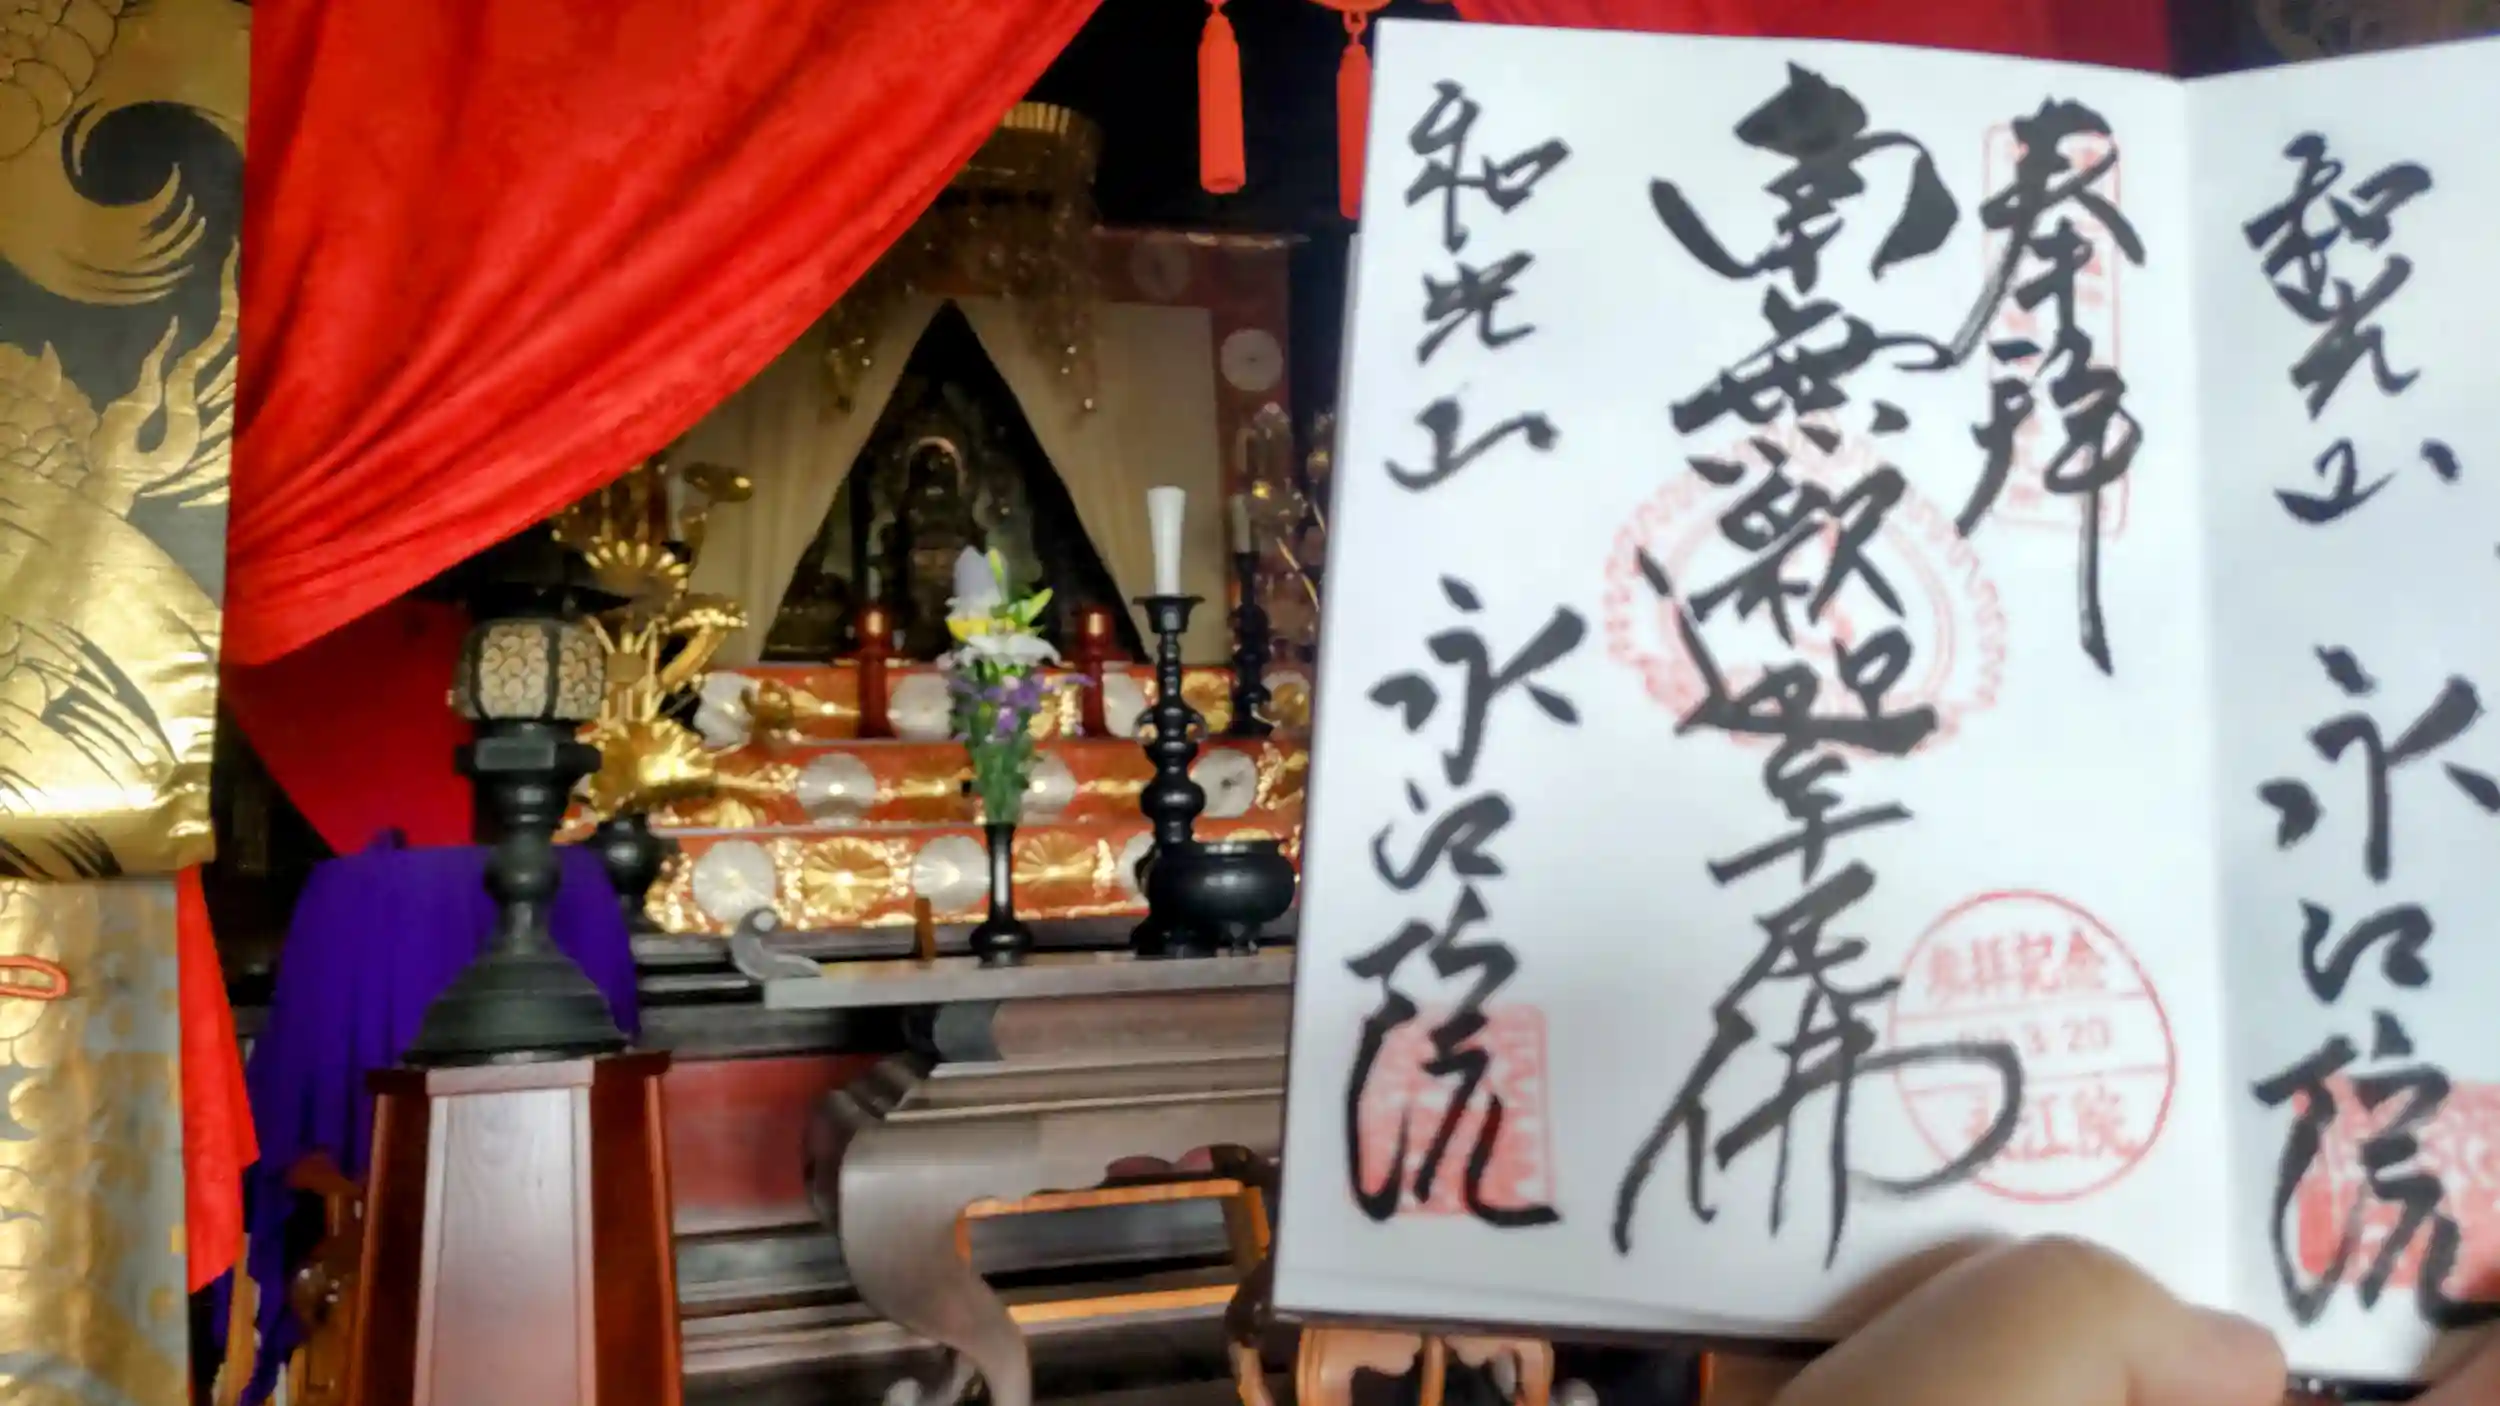 奉拝
南無釈迦牟尼佛
和光山 永江院
参拝記念
3 20
永江院
和光山 永江院